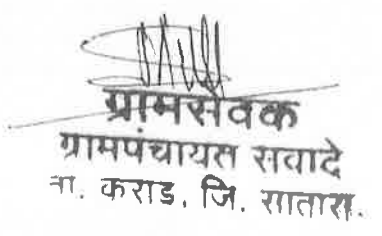 ग्रामसेवक
ग्रामपंचायत सवादे
ता. कराड, जि. सातारा.